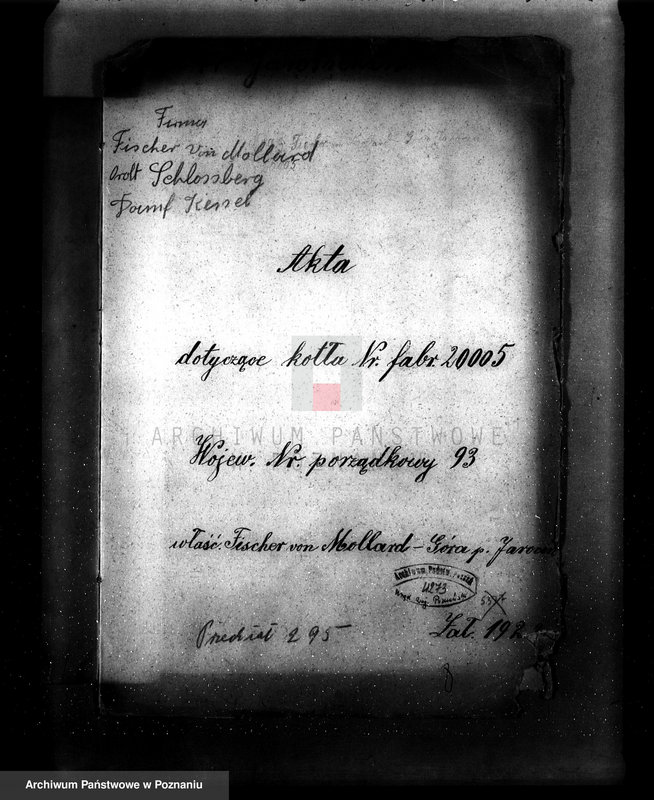 Firma
Fischer von Mollard
Schlossberg
Dampf Kessel
Akta
dotyczące kotła Nr. fabr. 20005
ARCHIWUM PAŃSTWOWE
Wojew. Nr. porządkowy 93
właść. Fischer von Mollard - Góra p. Jarocin
Archiwum Państw. Poznań
4273
Zał. 192
295
Archiwum Państwowe w Poznaniu